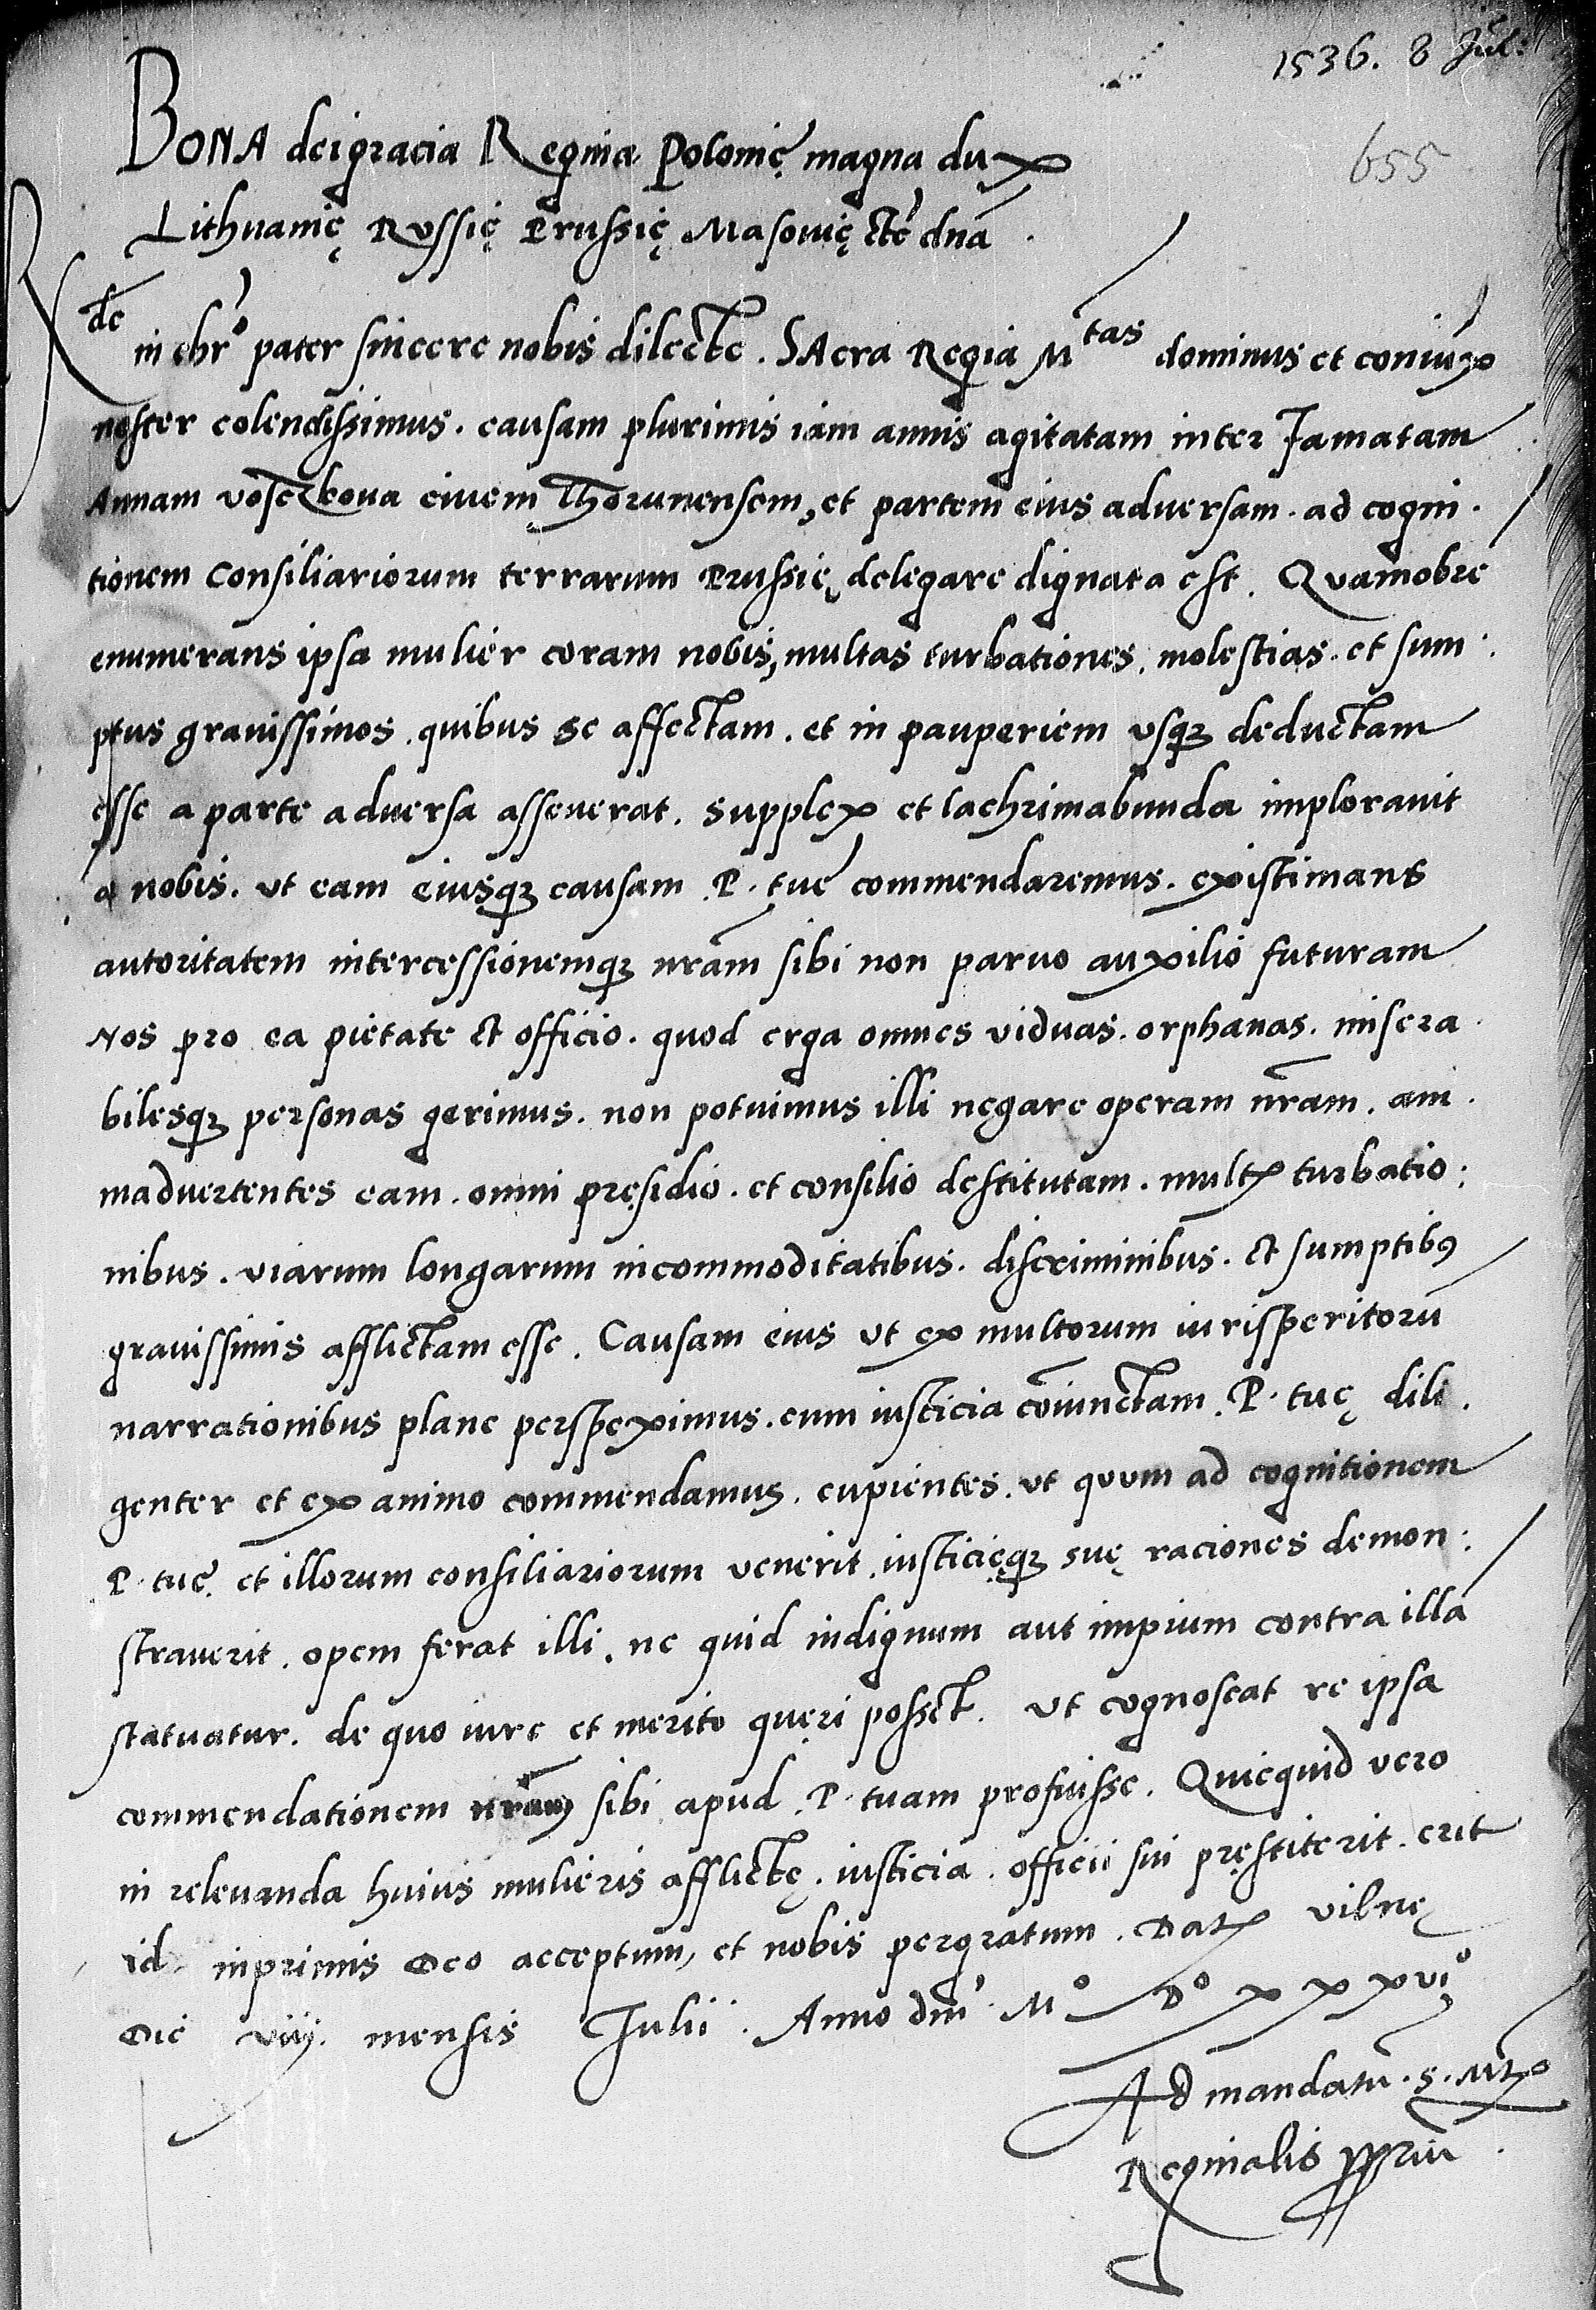 1536. 8 Jul:
655
BONA dei gracia Regina Polonię magna dux
Lithuanię Russię Prussię Masovię etc̄ dn̄a .
Rde in chr̄o pater sincere nobis dilecte . SAcra Regia Mtas dominus et coniunx
noster colendissimus . causam plurimis iam annis agitatam inter Famatam
Annam voserkova civem Thorunensem, et partem eius adversam . ad cogni .
tionem Consiliariorum terrarum Prussię delegare dignata est . Quamobrē
enumerans ipsa mulier coram nobis, multas turbationes . molestias . et sum :
ptus gravissimos . quibus se affectam . et in pauperiem usqȝ deductam
esse a parte adversa asseverat . supplex et lachrimabunda imploravit
a nobis . ut eam eiusqȝ causam P. tuę commendaremus . existimans
autoritatem intercessionemqȝ nr̄am sibi non parvo auxilio futuram
Nos pro ea pietate et officio . quod erga omnes viduas . orphanas . misera .
bilesqȝ personas gerimus . non potuimus illi negare operam nr̄am . ani .
madvertentes eam . omni pręsidio . et consilio destitutam . multꝭ turbatio :
nibus . viarum longarum incommoditatibus . discriminibus . et sumptibꝰ
gravissimis afflictam esse . Causam eius ut ex multorum iurisperitorū
narrationibus plane perspeximus . cum iusticia cōiunctam . P. tuę dili .
genter et ex animo commendamus . cupientes . ut quum ad cognitionem
P. tuę et illorum consiliariorum venerit . iusticięqȝ suę raciones demon :
straverit . opem ferat illi . ne quid indignum aut impium contra illā
statuatur . de quo iure et merito quęri posset . ut cognoscat re ipsa
commendationem nr̄am sibi apud P. tuam profuisse . Quicquid vero
in relevanda huius mulieris afflictę . iusticia . officii sui pręstiterit . erit
id inprimis Deo acceptum, et nobis pergratum . Datꝭ vilnę
Die viij . mensis Julii . Anno dn̄i Mo Do xxxvio
Ad mandatū . s . Mtꝭ
Reginalis ppriū .